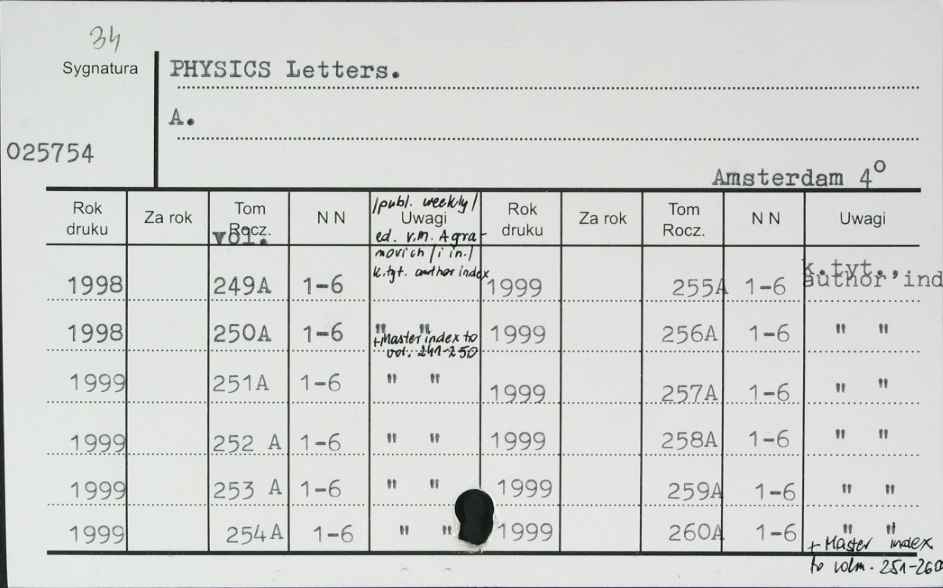 34
Sygnatura
PHYSICS Letters.
A.
025754
Amsterdam 4°
Rok druku Za rok Tom Rocz. vol. N N Uwagi Rok druku Za rok Tom Rocz. N N Uwagi
/publ. weekly/
ed. V.M. Agra-
movich /i in./
k.tyt. author index
1998 249A 1-6 1999 255A 1-6 k.tyt., author ind
1998 250A 1-6 " " 1999 256A 1-6 " "
+Master index to
vol. 241-250
1999 251A 1-6 " " 1999 257A 1-6 " "
1999 252 A 1-6 " " 1999 258A 1-6 " "
1999 253 A 1-6 " " 1999 259A 1-6 " "
1999 254A 1-6 " " 1999 260A 1-6 " "
+ Master index
to volm. 251-260